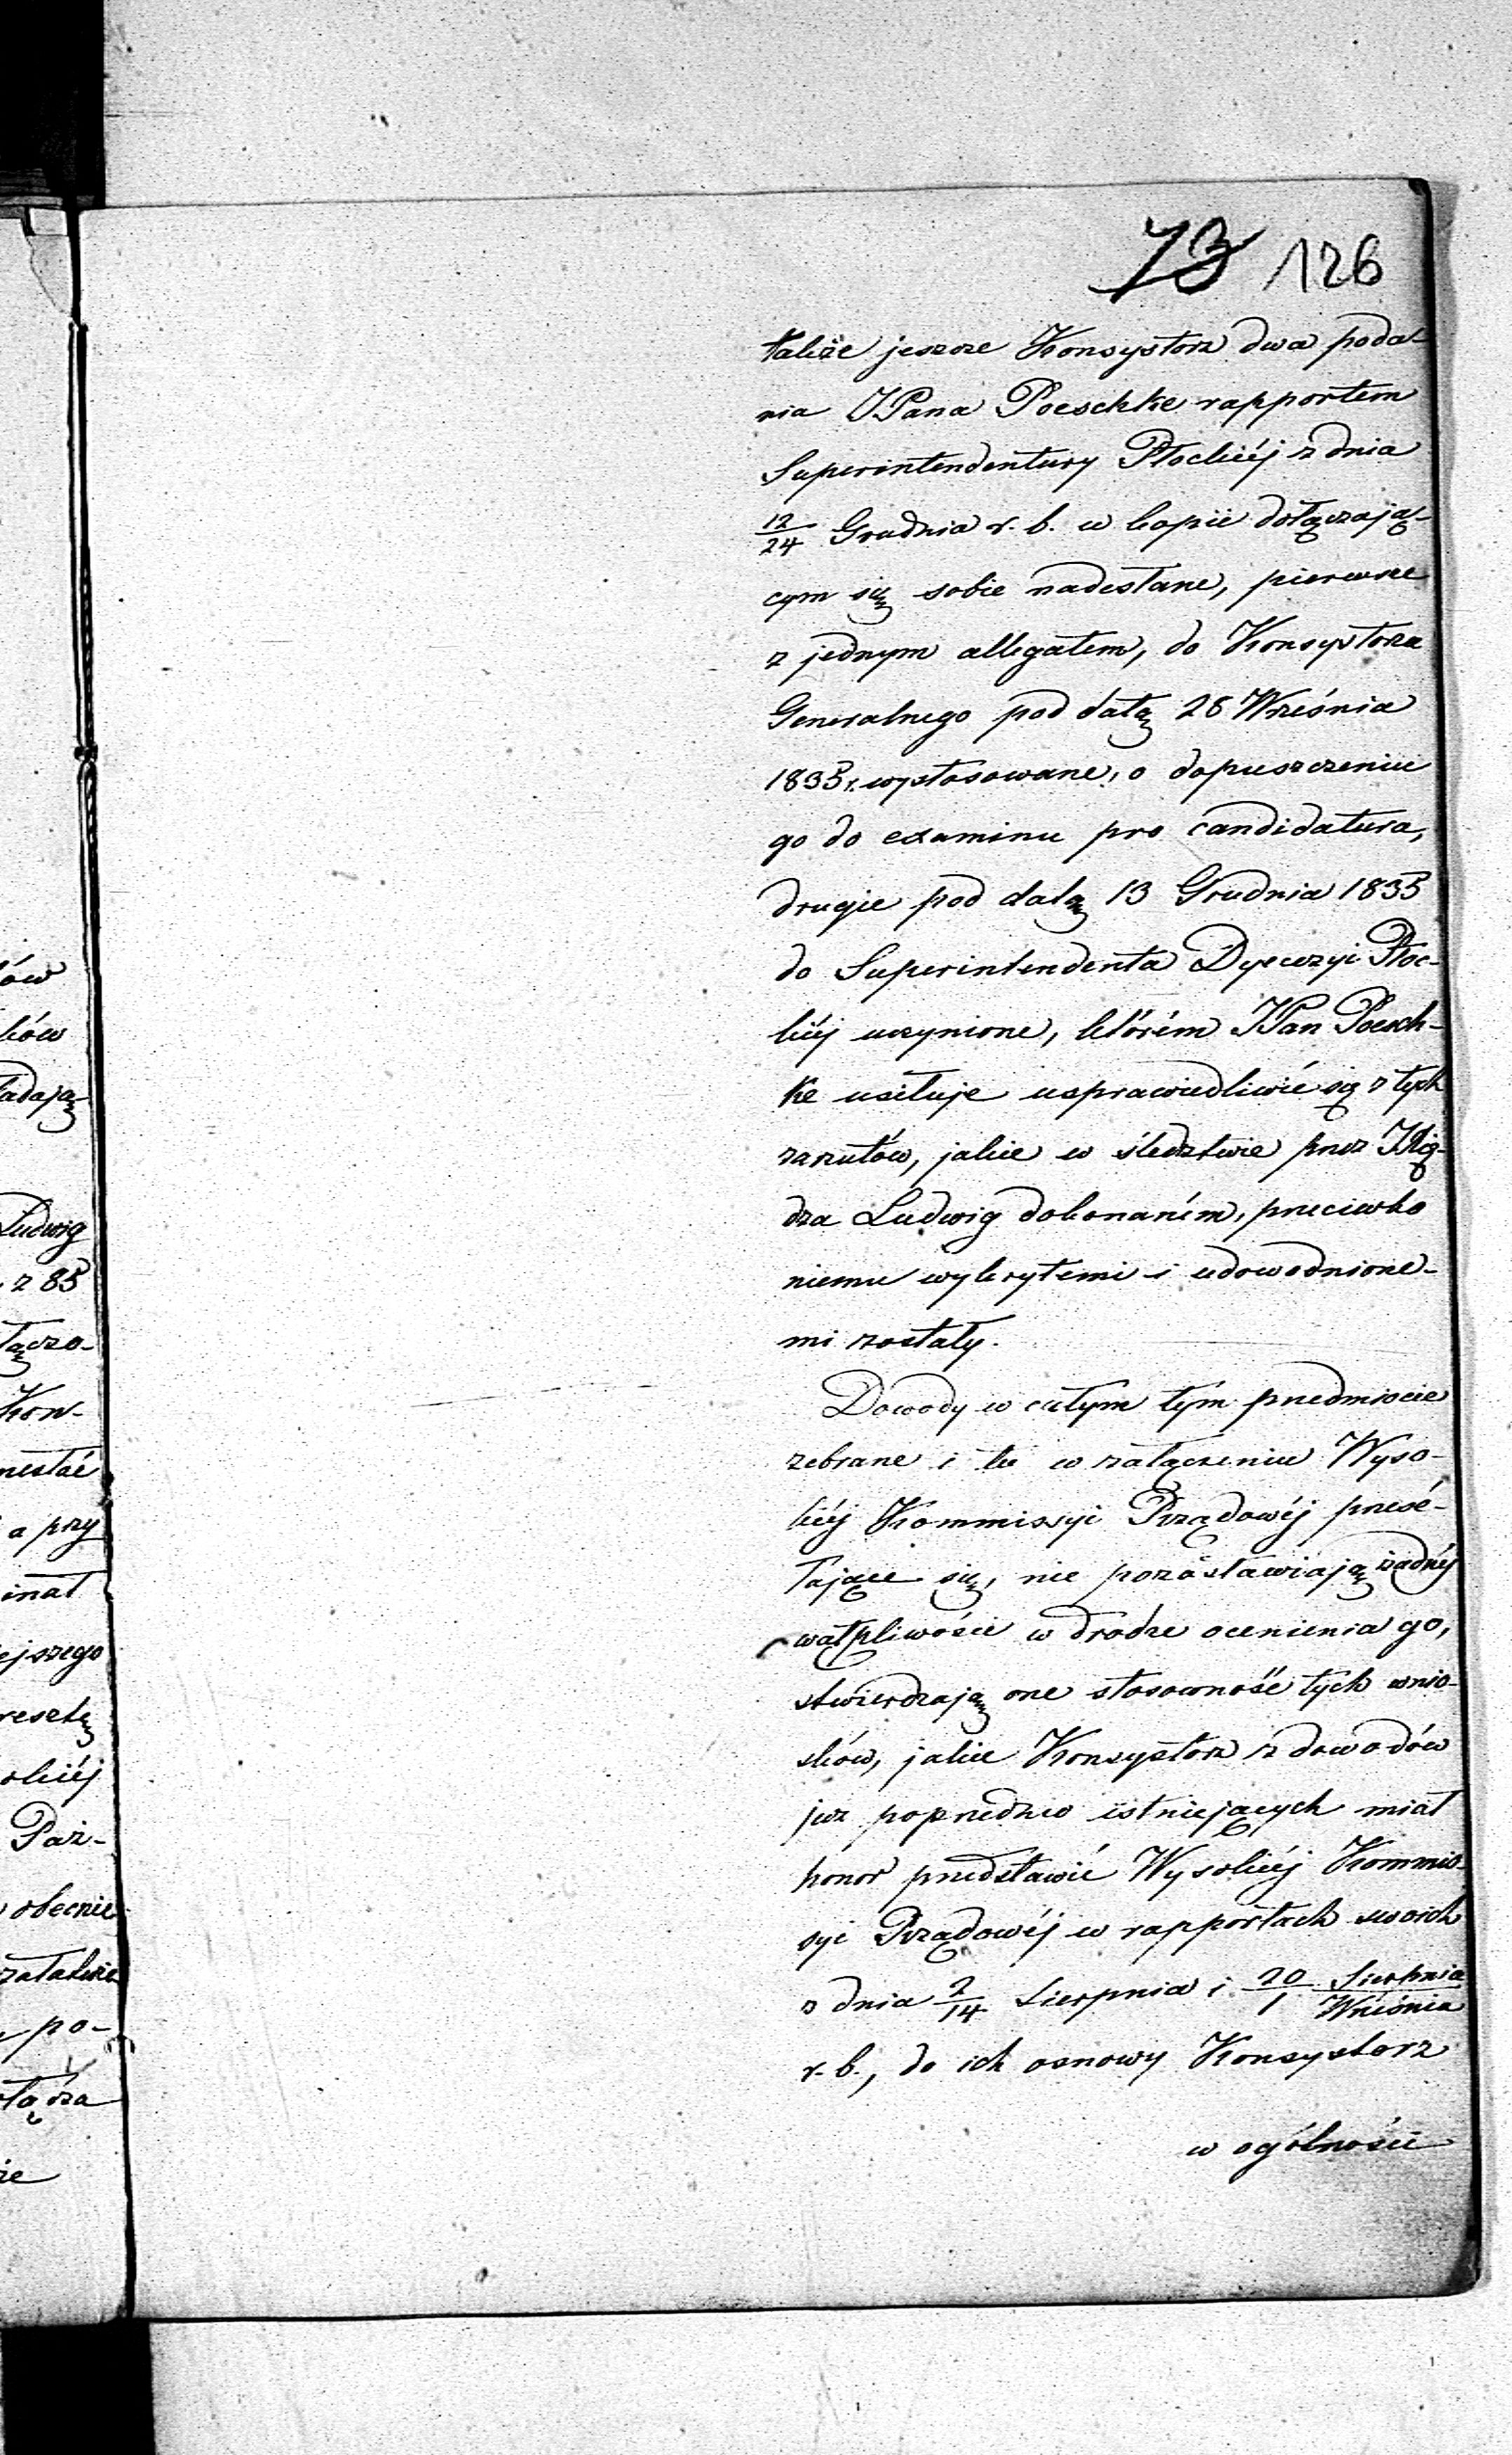 73 126
także jeszcze Konsystorz dwa poda-
nia JPana Poeschke rapportem
Superintendentury Płockiéj z dnia
12/24 Grudnia r. b. w kopii dołączają-
cym się sobie nadesłane, pierwsze
z jednym allegatem, do Konsystorza
Generalnego pod datą 26 Września
1835 r. wystosowane, o dopuszczeniu
go do examinu pro candidatura,
drugie pod datą 13 Grudnia 1835
do Superintendenta Dyecezyi Płoc-
kiéj uczynione, którém JPan Poesch-
ke usiłuje usprawiedliwić się z tych
zarzutów, jakie w śledztwie przez JXię-
dza Ludwig dokonaném, przeciwko
niemu wykrytemi i udowodnione-
mi zostały.
Dowody w całym tym przedmiocie
zebrane i tu w załączeniu Wyso-
kiéj Kommissyi Rządowéj przesé-
łające się, nie pozostawiają żadnéj
wątpliwości w drodze ocenienia go,
stwierdzają one stosowność tych wnio-
sków, jakie Konsystorz z dowodów
już poprzednio istniejących miał
honor przedstawić Wysokiéj Kommis-
syi Rządowéj w rapportach swoich
z dnia 2/14 Sierpnia i 20 Sierpnia/1 Września
r. b., do ich osnowy Konsystorz
w ogólności
ów
ków
adają
Ludwig
z 85
łączo-
Kon-
nestać
a przy
inał
ejszego
resztę
okiéj
Paź-
obecnie
załatwie
po-
ie